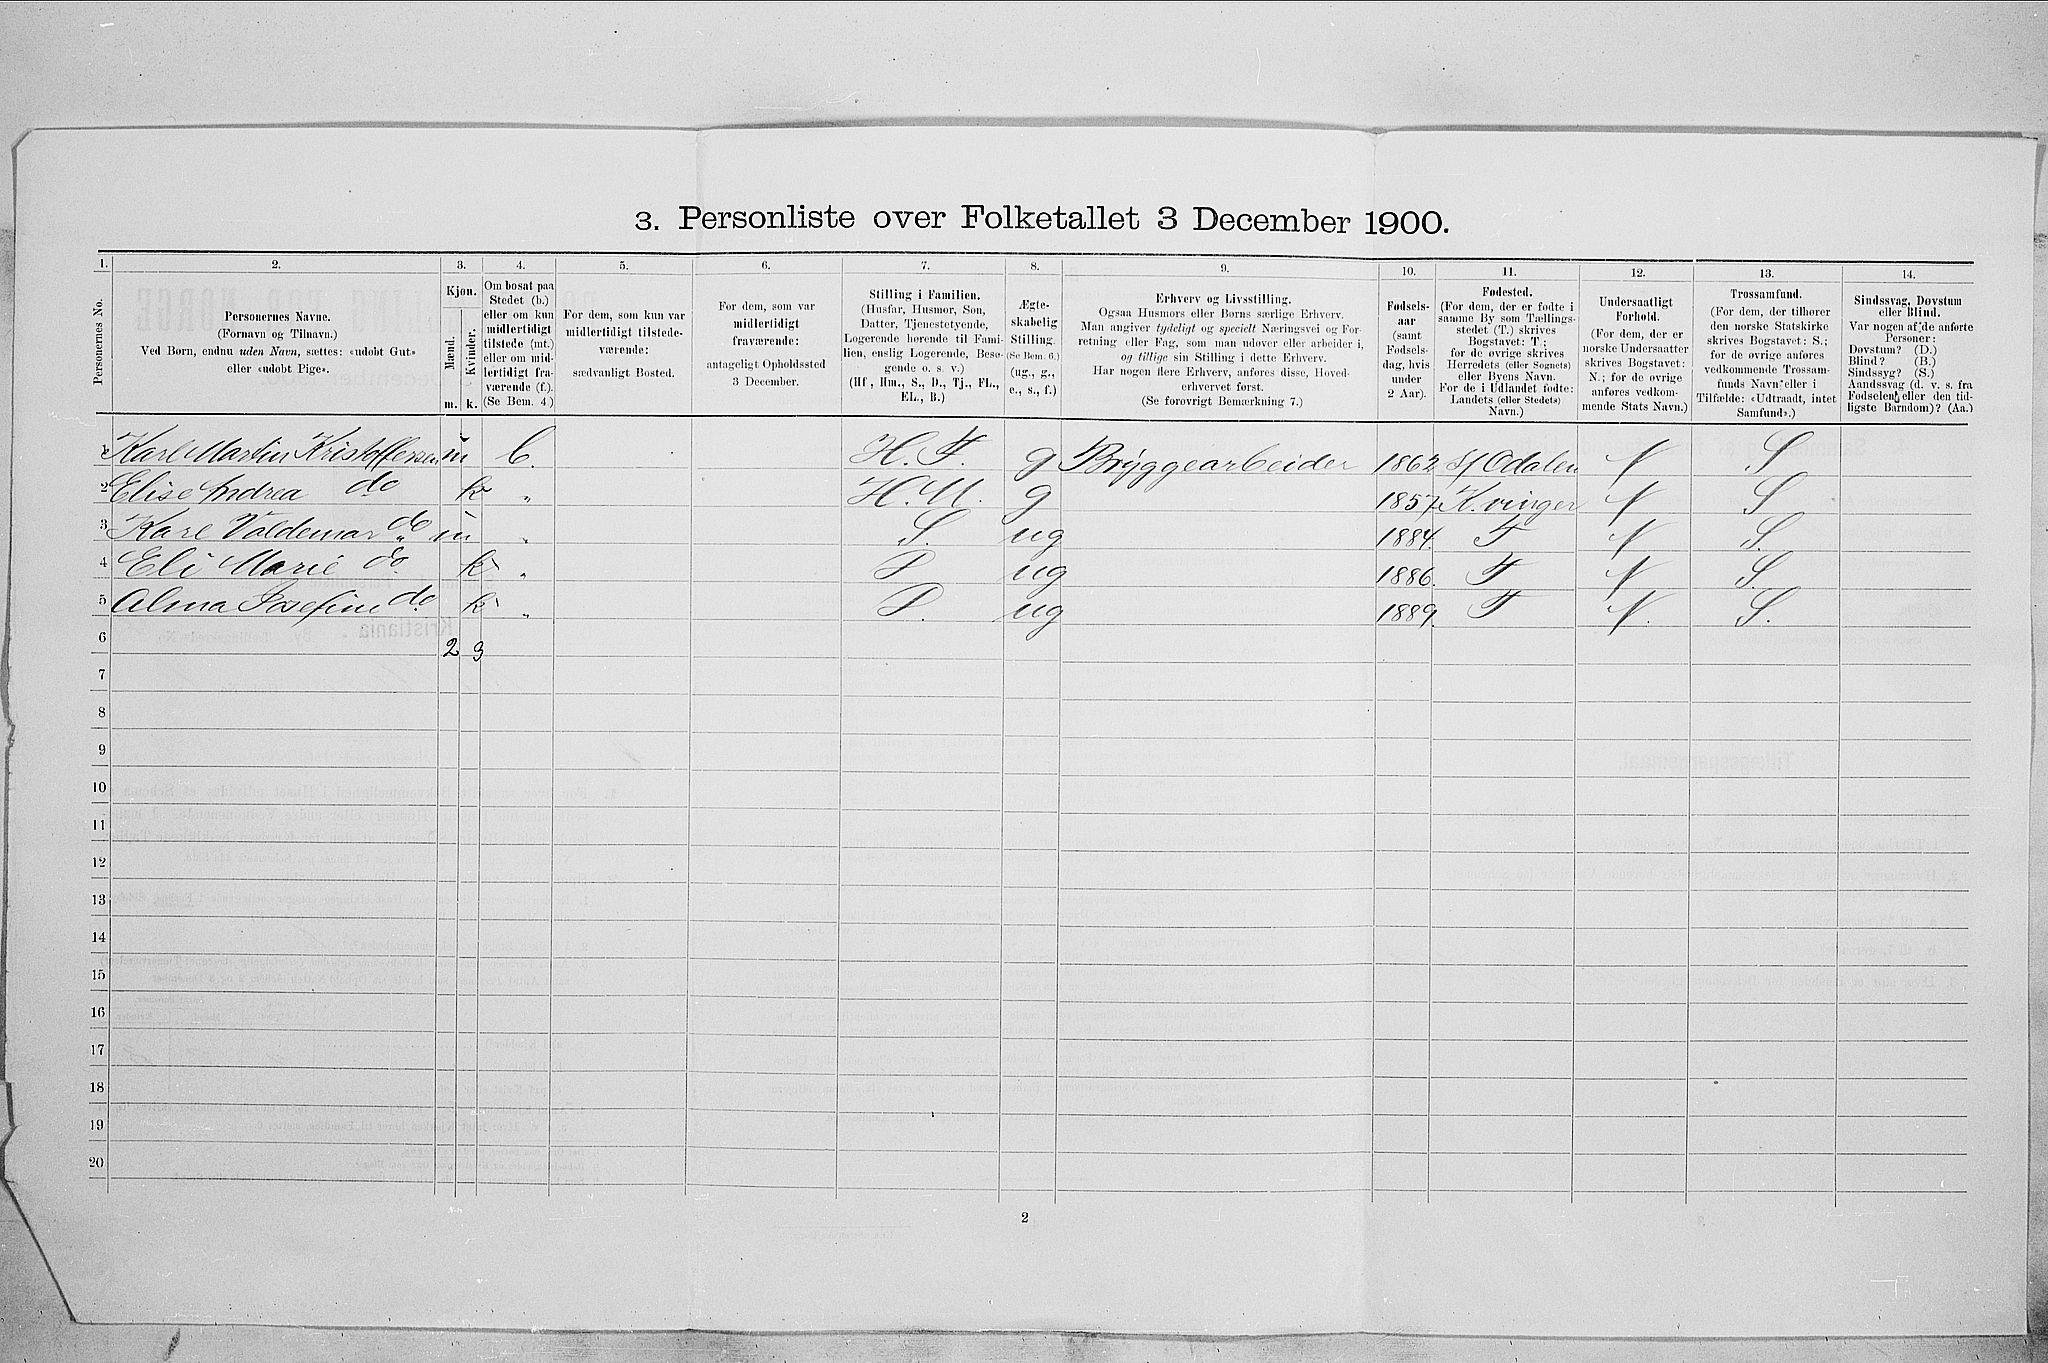 3. Personliste over Folketallet 3 December 1900.
1. 2. 3. 4. 5. 6. 7. 8. 9. 10. 11. 12. 13. 14.
Personernes No.
Personernes Navne.
(Fornavn og Tilnavn.)
Ved Børn, endnu uden Navn, sættes: «udøbt Gut»
eller «udøbt Pige».
Kjøn.
Mænd.
Kvinder.
m. k.
Om bosat paa
Stedet (b.)
eller om kun
midlertidigt
tilstede (mt.)
eller om mid-
lertidigt fra-
værende (f.).
(Se Bem. 4.)
For dem, som kun var
midlertidigt tilstede-
værende:
sædvanligt Bosted.
For dem, som var
midlertidigt
fraværende:
antageligt Opholdssted
3 December.
Stilling i Familien.
(Husfar, Husmor, Søn,
Datter, Tjenestetyende,
Logerende hørende til Fami-
lien, enslig Logerende, Besø-
gende o. s. v.)
(Hf., Hm., S., D., Tj., FL.,
EL., B.)
Ægte-
skabelig
Stilling.
(Se Bem. 6.)
(ug., g.,
e., s., f.)
Erhverv og Livsstilling.
Ogsaa Husmors eller Børns særlige Erhverv.
Man angiver tydeligt og specielt Næringsvei og For-
retning eller Fag, som man udøver eller arbeider i,
og tillige sin Stilling i dette Erhverv.
Har nogen flere Erhverv, anføres disse, Hoved-
erhvervet først.
(Se forøvrigt Bemærkning 7.)
Fødsels-
aar
(samt
Fødsels-
dag, hvis
under
2 Aar).
Fødested.
(For dem, der er fødte i
samme By som Tællings-
stedet (T.) skrives
Bogstavet: T.;
for de øvrige skrives
Herredets (eller Sognets)
eller Byens Navn.
For de i Udlandet fødte:
Landets (eller Stedets)
Navn.)
Undersaatligt
Forhold.
(For dem, der er
norske Undersaatter
skrives Bogstavet:
N.; for de øvrige
anføres vedkom-
mende Stats Navn.)
Trossamfund.
(For dem, der tilhører
den norske Statskirke
skrives Bogstavet: S.;
for de øvrige anføres
vedkommende Trossam-
funds Navn eller i
Tilfælde: «Udtraadt, intet
Samfund».)
Sindssvag, Døvstum
eller Blind.
Var nogen af de anførte
Personer:
Døvstum? (D.)
Blind? (B.)
Sindssyg? (S.)
Aandssvag (d. v. s. fra
Fødselen eller den tid-
ligste Barndom)? (Aa.)
1 Karl Martin Kristoffersen m b. H. F. g Bryggearbeider 1862 S Odalen N S
2 Elise Andrea do k „ H. M. g 1857 K.vinger N S
3 Karl Valdemar do m „ S. ug 1884. T N S.
4 Eli Marie do k „ D ug 1886. T N S
5 Alma Josefine do k „ D. ug 1889. T N. S.
6 2 3
7
8
9
10
11
12
13
14
15
16
17
18
19
20
2